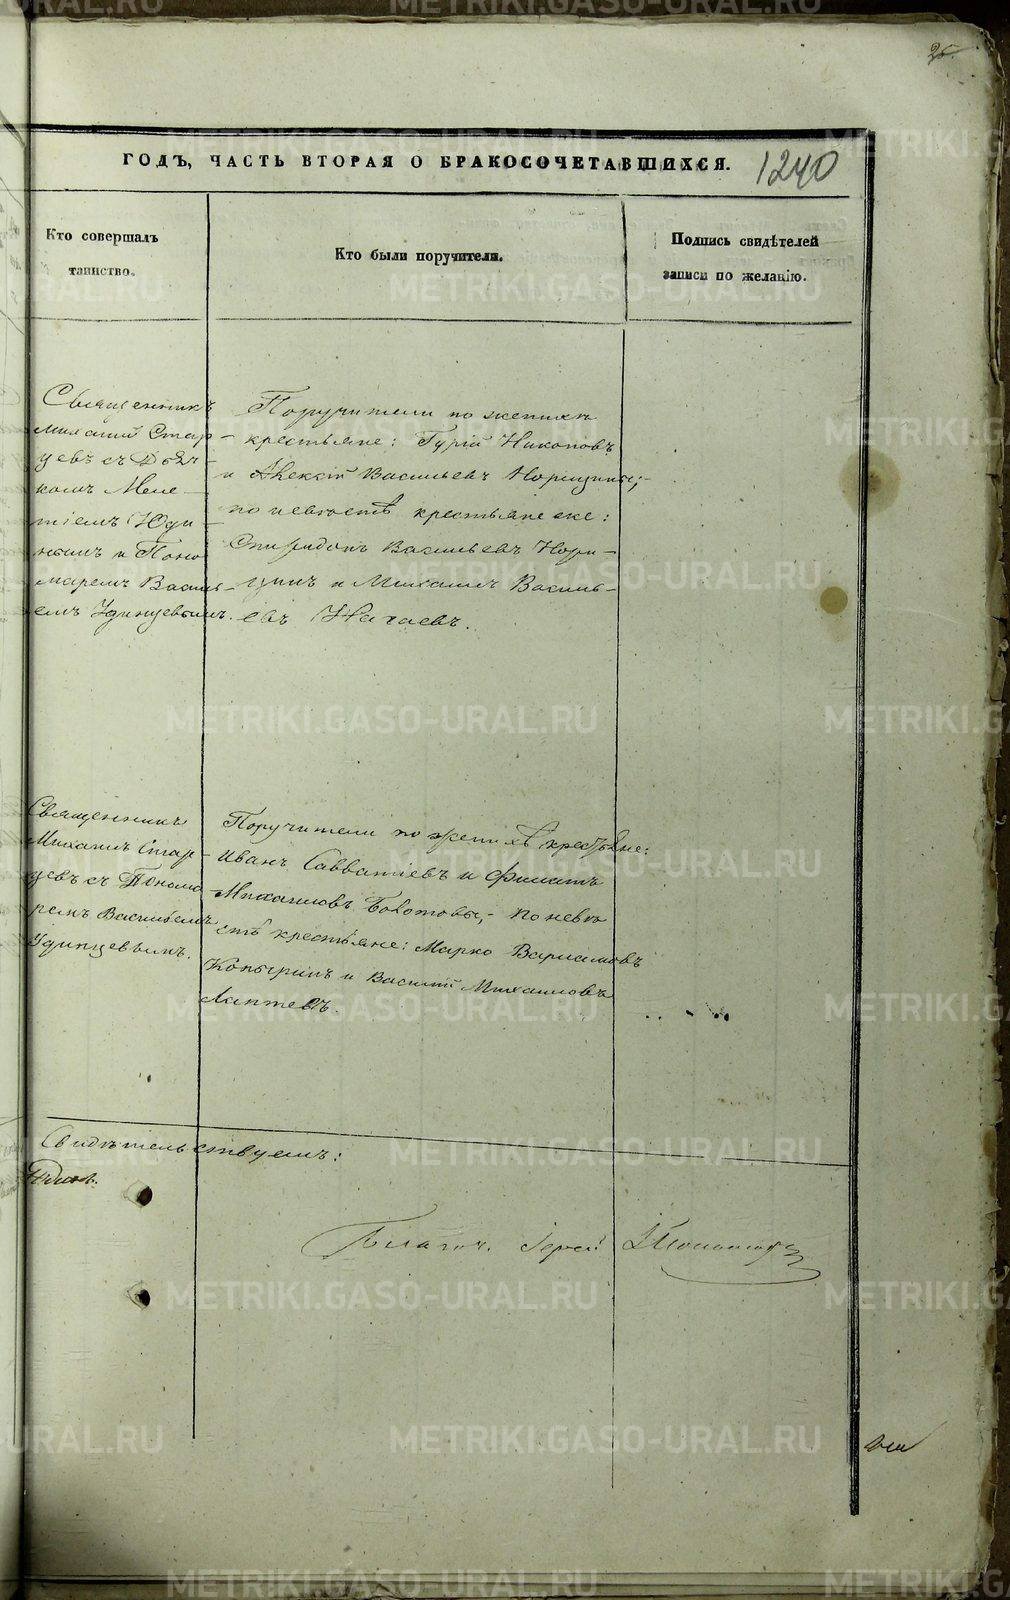 25.
ГОДЪ, ЧАСТЬ ВТОРАЯ О БРАКОСОЧЕТАВШИХСЯ.
1240
Кто совершалъ
таинство.
Кто были поручители.
Подпись свидѣтелей
записи по желанію.
Священникъ
Михаилъ Стар-
цевъ съ Дьяч-
комъ Меле-
тіемъ Юди-
нымъ и Поно
маремъ Василь-
емъ Удинцевымъ.
Поручители по женихѣ
крестьяне: Гурій Никоновъ
и Алексій Васильевъ Норицины;-
по невѣстѣ крестьяне же:
Спиридонъ Васильевъ Нори-
цинъ и Михаилъ Василь-
евъ
Священникъ
Михаилъ Стар-
цевъ съ Понома
ремъ Васильемъ
Удинцевымъ.
Поручители по женихѣ крестьяне:
Иванъ Савватіевъ и Филатъ
Михаиловъ Болотовы,- по невѣ
стѣ крестьяне: Марко Варламовъ
Копыринъ и Василій Михаиловъ
Лаптевъ.
Свидѣтельствуемъ:
Благоч. Іерей
METRIKI.GASO-URAL.RU